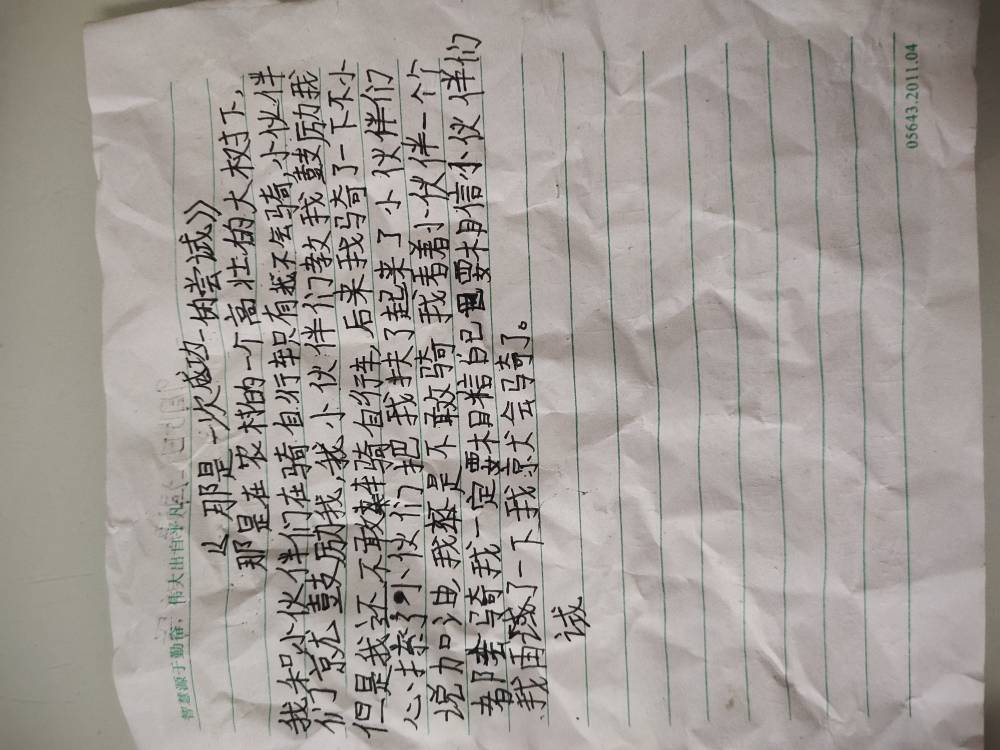 智慧源于勤奋，伟大出自平凡
《那是一次成功的尝试》
那是在农村的一个高壮的大树下，
我和小伙伴们在骑自行车只有我不会骑小伙伴
们了就鼓励我，我小伙伴们教我鼓励我
但是我还不敢骑自行车，后来我骑了一下不小
心摔了小伙们把我扶了起来了小伙伴们
说加油我是不敢骑我看着小伙伴一个个
都骑我一定要相信自己要相信小伙伴们
我再试了一下我会骑了。
诚
05643.2011.04